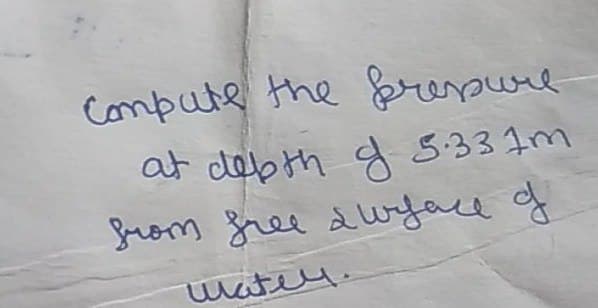 Compute the pressure
at depth of 5.337m
from free surface of
water.